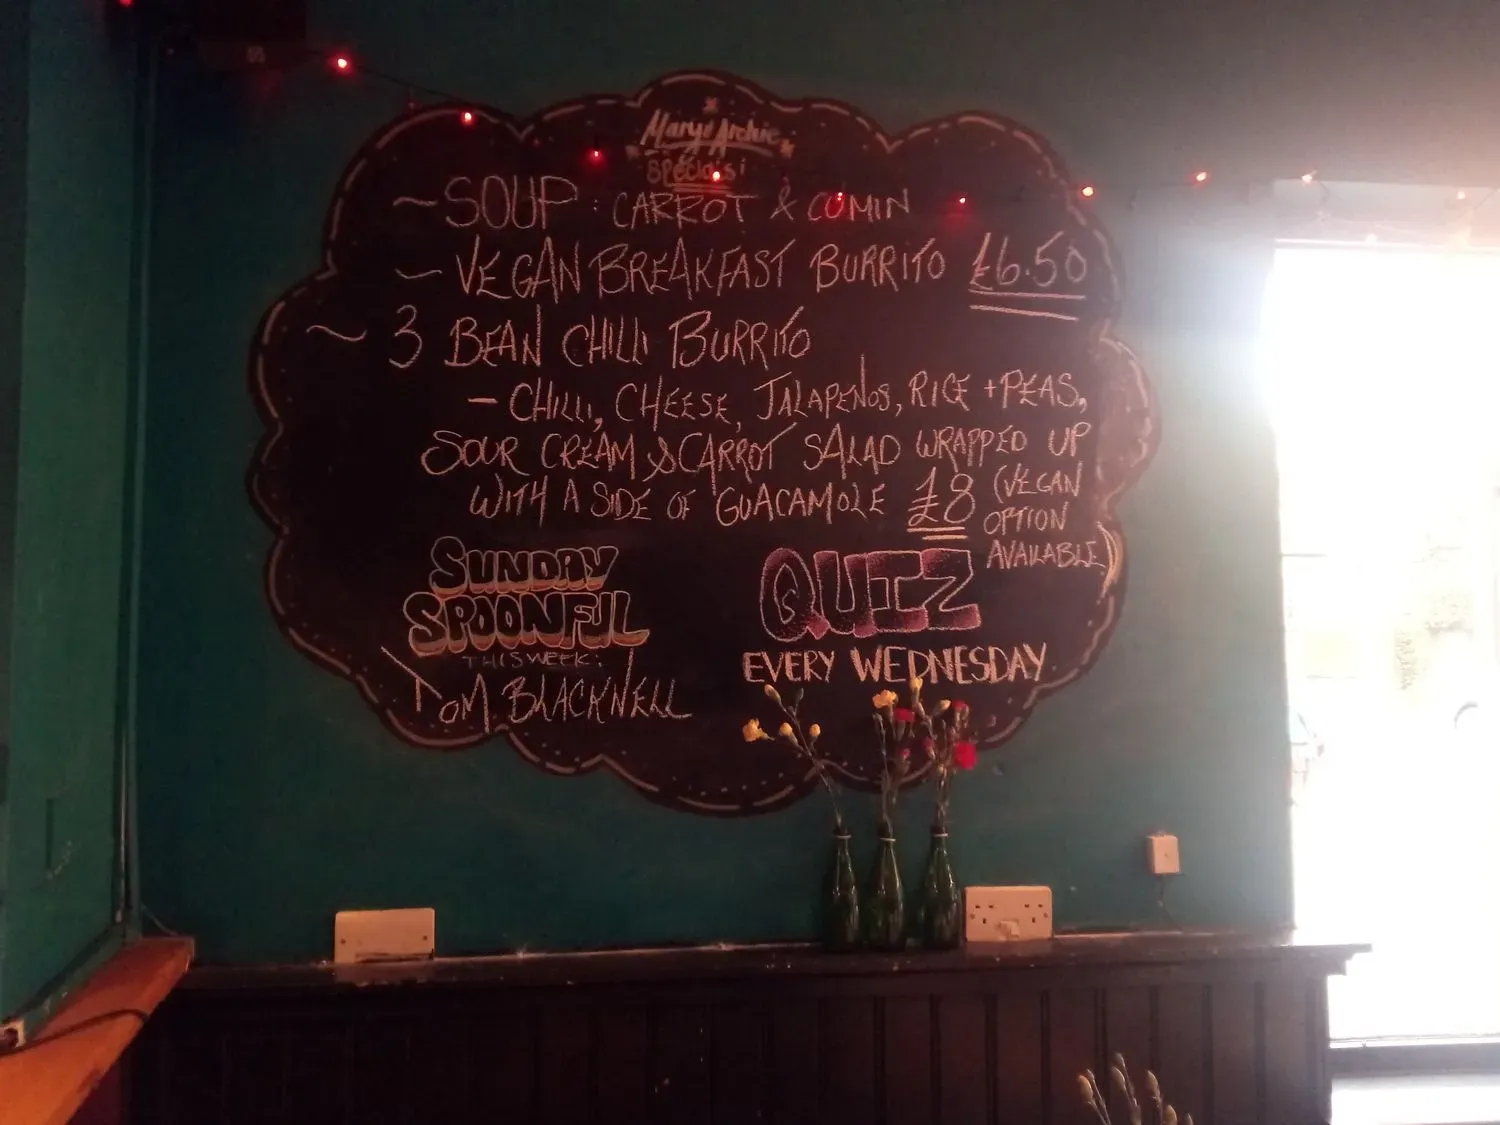 Mary & Archie
Specials!
~ SOUP : CARROT & CUMIN
~ VEGAN BREAKFAST BURRITO £6.50
~ 3 BEAN CHILLI BURRITO
- CHILLI, CHEESE, JALAPEÑOS, RICE + PEAS,
SOUR CREAM & CARROT SALAD WRAPPED UP
WITH A SIDE OF GUACAMOLE £8 (VEGAN
OPTION
AVAILABLE)
SUNDAY
SPOONFUL
THIS WEEK:
TOM BLACKNELL
QUIZ
EVERY WEDNESDAY